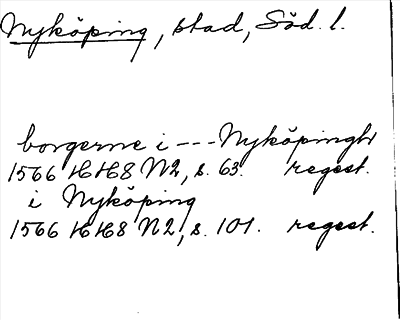 Nyköping, stad, Söd. l.
borgerne i --- Nyköpingh
1566 HH8 N2, s. 63. regest.
i Nyköping
1566 HH8 N2, s. 101. regest.